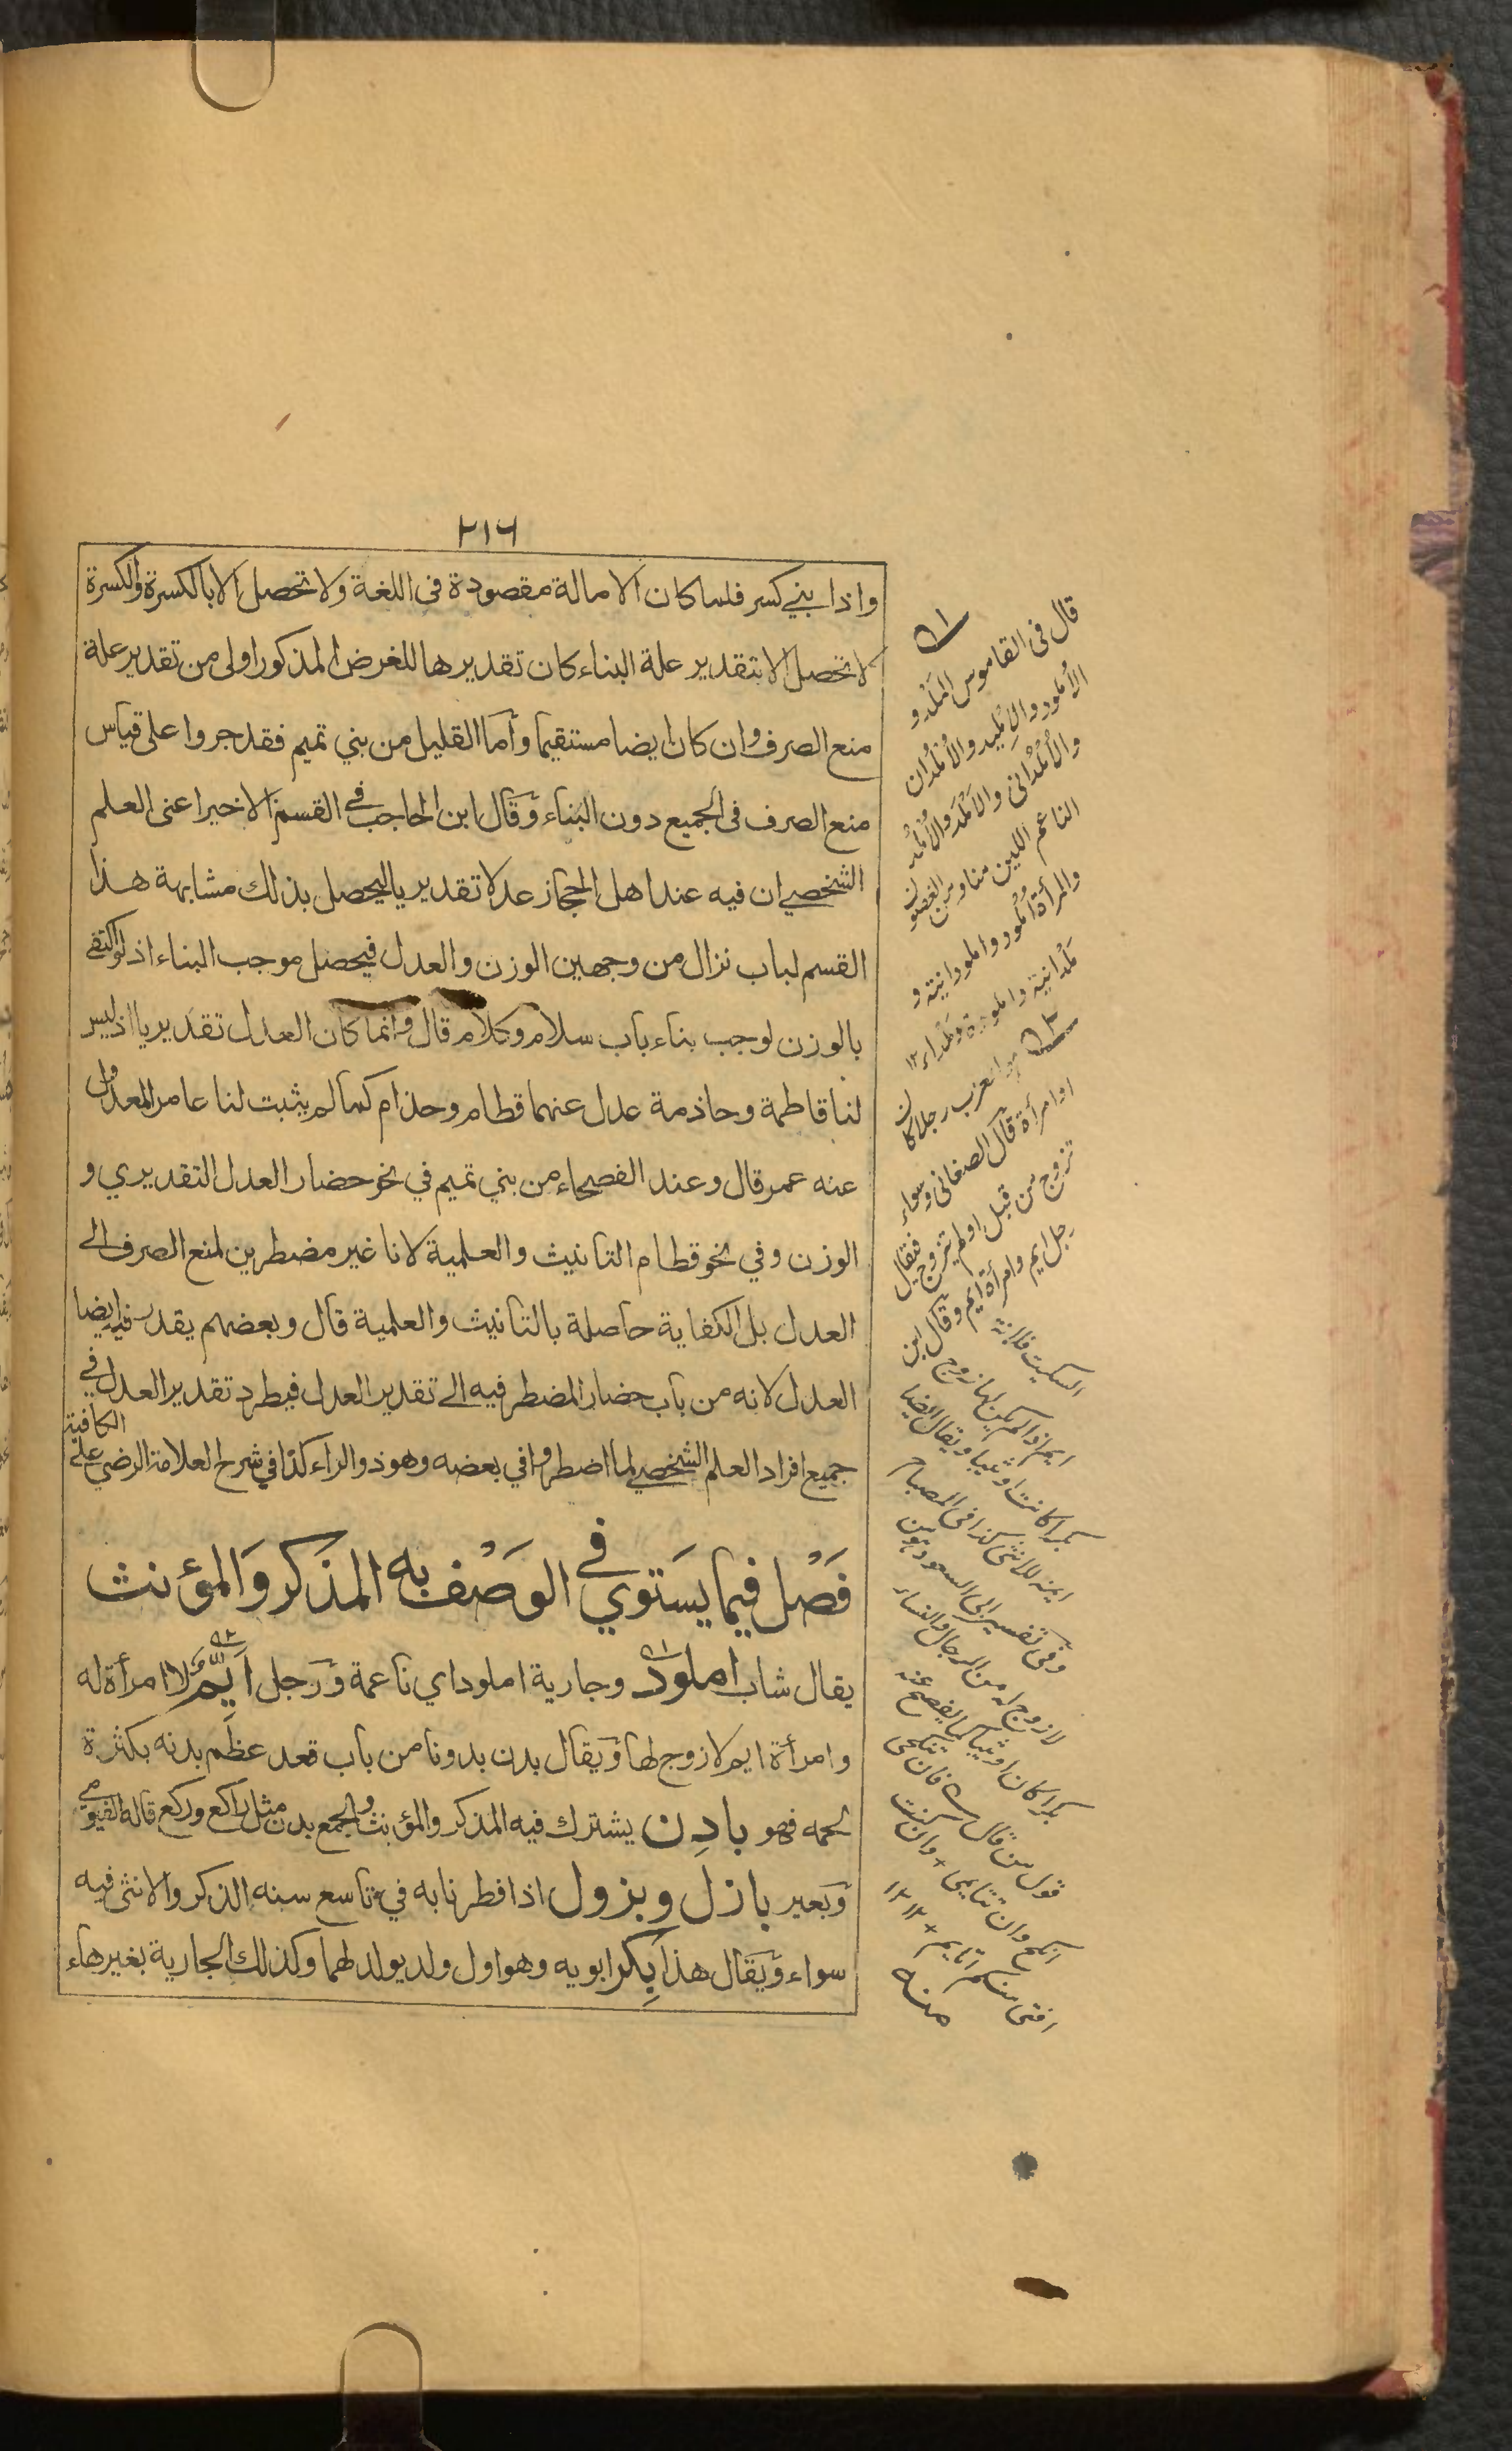 ٢١٦
واذا بني كسر فلما كان الامالة مقصودة فى اللغة ولا تحصل الا بالكسرة والكسرة
لا تحصل الا بتقدير علة البناء كان تقديرها للغرض المذكور اولى من تقدير علة
منع الصرف وان كان ايضا مستقيما وأما القليل من بني تميم فقد جروا على قياس
منع الصرف فى الجميع دون البناء وقال ابن الحاجب في القسم الاخير اعنى العلم
الشخصي ان فيه عند اهل الحجاز عدلا تقديريا ليحصل بذلك مشابهة هذا
القسم لباب نزال من وجهين الوزن والعدل فيحصل موجب البناء اذ لو اكتفى
بالوزن لوجب بناء باب سلام وكلام قال وانما كان العدل تقديريا اذ ليس
لنا قاطمة وحاذمة عدل عنهما قطام وحذام كما لم يثبت لنا عامر المعدول
عنه عمر قال وعند الفصحاء من بني تميم في نحو حضار العدل التقديري و
الوزن وفي نحو قطام التانيث والعلمية لانا غير مضطرين لمنع الصرف الى
العدل بل الكفاية حاصلة بالتانيث والعلمية قال وبعضهم يقدر فيه ايضا
العدل لانه من باب حضار المضطر فيه الى تقدير العدل فيطرد تقدير العدل في
جميع افراد العلم الشخصي لما اضطروا في بعضه وهو ذو الراء كذا في شرح العلامة الرضي على الكافية
فَصْل فيما يَستوي في الوَصْف به المذكر وَالمؤنث
يقال شاب املودٌ وجارية املود اي ناعمة وَرَجل اَيِّمٌ لا امرأة له
وامرأة ايم لا زوج لها ويقال بدن بدونا من باب قعد عظم بدنه بكثرة
لحمه فهو بادِن يشترك فيه المذكر والمؤنث والجمع بدن مثل راكع وركع قاله الفيومي
وَبَعير بازل وبزول اذا فطر نابه في تاسع سنه الذكر والانثى فيه
سواء ويقال هذا بِكر ابويه وهو اول ولد يولد لهما وكذلك الجارية بغير هاء
١
قال فى القاموس المَلْد و
الأُملود والإمليد والأُملدان
والأُملُدانى والأَملد والأُملُد
الناعم اللين منا ومن الغصون
والمرأة أملود واملودانية و
مَلدانية واملودة وملداء ١٢
٢ هو العزب رجلا كان
او امرأة قال الصغانى وسواء
تزوج من قبل او لم يتزوج فيقال
رجل ايم وامرأة ايم وقال ابن
السكيت فلانة
ايم اذا لم يكن لها زوج
بكرا كانت او ثيبا ويقال ايضا
ايمة للانثى كذا فى المصباح
وفى تفسير ابى السعود هو من
لا زوج له من الرجال والنساء
بكرا كان او ثيبا كما يفصح عنه
قول من قال فان تنكحى
انكح وان تتايمى + وان كنت
افتى منكم اتايم + ١٢ ١٢
منه